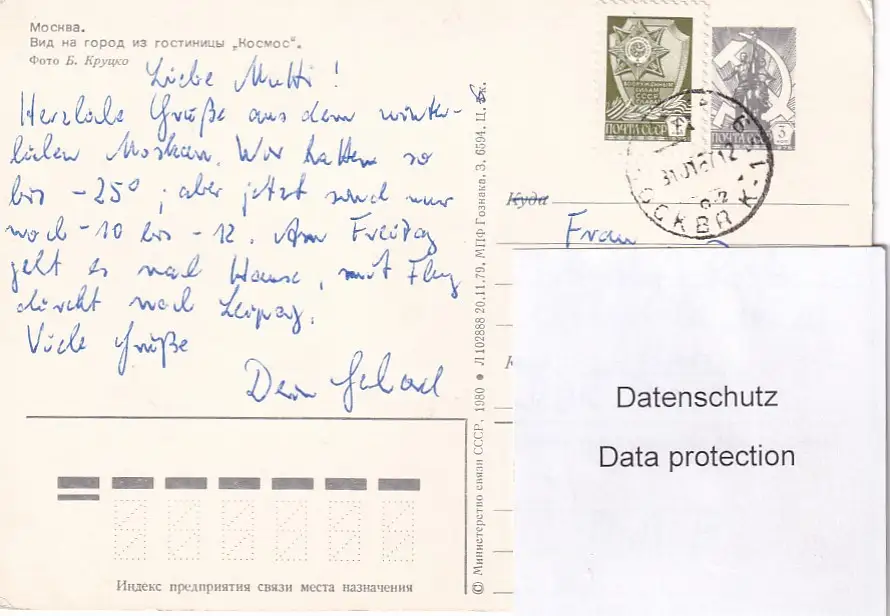 Москва.
Вид на город из гостиницы „Космос“.
Фото Б. Круцко
Liebe Mutti!
Herzliche Grüße aus dem winter-
lichen Moskau. Wir hatten so
bis -25°; aber jetzt sind nur
noch -10 bis -12. Am Freitag
geht es nach Hause, mit Flug
direkt nach Leipzig.
Viele Grüße
Dein
Индекс предприятия связи места назначения
© Министерство связи СССР. 1980 ● Л 102888 20.11.79. МПФ Гознака. З. 6594. Ц. 8 к.
ВООРУЖЕННЫМ
СИЛАМ
СССР
ПОЧТА СССР 1к
ПОЧТА СССР 3
МОСКВА К-
Куда
Frau
Datenschutz
Data protection